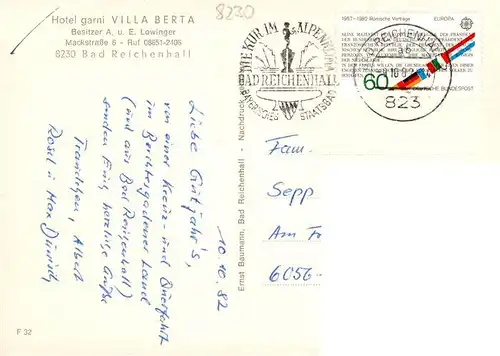 8230
Hotel garni VILLA BERTA
Besitzer A. u. E. Lowinger
Mackstraße 6 - Ruf 08651-2405
8230 Bad Reichenhall
DIE KUR IM ALPENKLIMA
BAD REICHENHALL
BAYERISCHES STAATSBAD
1957-1982 Römische Verträge EUROPA
60
DEUTSCHE BUNDESPOST
823
Ernst Baumann, Bad Reichenhall - Nachdruck
10.10.82
Liebe Gutjahr's,
von einer Kreuz- und Querfahrt
im Berchtesgadener Land
(und aus Bad Reichenhall)
senden Eug herzliche Grüße
Albert
Rosel u Max
Fam.
Sepp
Am
6056-
F 32